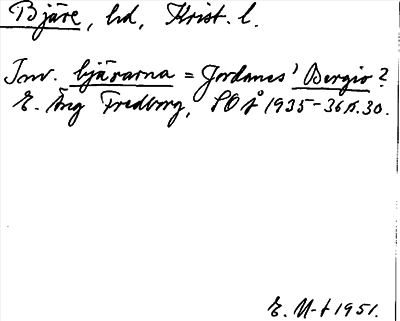 Bjäre, hd, Krist. l.
Inv. bjärarna = Jordanes' Bergio?
E. Äng Fredborg, SOÅ 1935-36 s. 30.
E. N-t 1951.